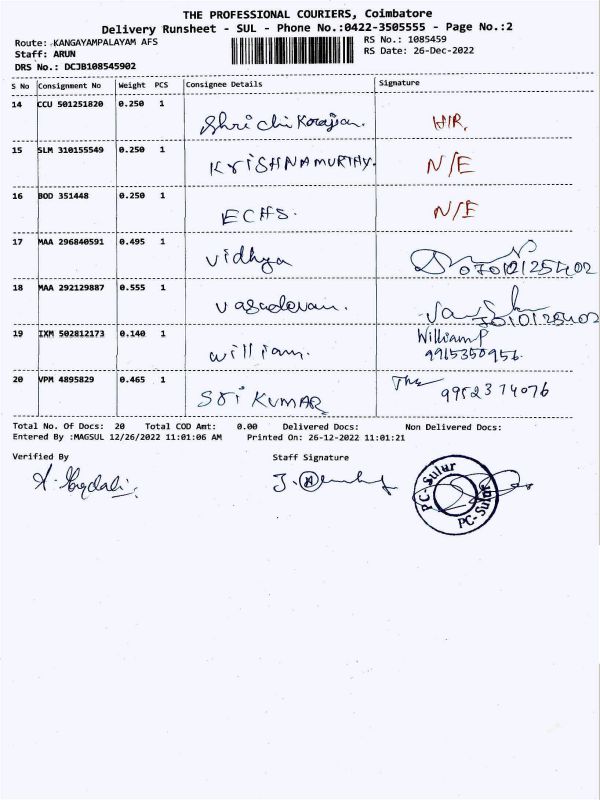 THE PROFESSIONAL COURIERS, Coimbatore
Delivery Runsheet - SUL - Phone No.:0422-3505555 - Page No.:2
Route: KANGAYAMPALAYAM AFS
RS No.: 1085459
Staff: ARUN
RS Date: 26-Dec-2022
DRS No.: DCJB108545902
S No Consignment No Weight PCS Consignee Details Signature
14 CCU 501251820 0.250 1 H/R.
15 SLM 310155549 0.250 1 KRISHNAMURTHY. N/E
16 BOD 351448 0.250 1 ECHS. N/E
17 MAA 296840591 0.495 1 Vidhya
18 MAA 292129887 0.555 1 Vasudevan.
19 IXM 502812173 0.140 1 william. William P
9965350956.
20 VPM 4895829 0.465 1 SRI KUMAR 9952374076
Total No. Of Docs: 20 Total COD Amt: 0.00 Delivered Docs: Non Delivered Docs:
Entered By :MAGSUL 12/26/2022 11:01:06 AM Printed On: 26-12-2022 11:01:21
Verified By Staff Signature
PC-Sulur
PC-Sulur